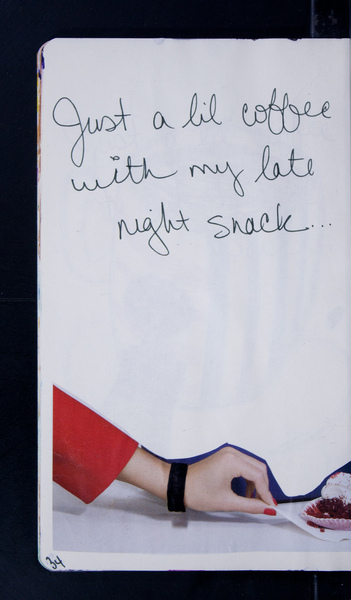 Just a lil coffee
with my late
night snack...
34